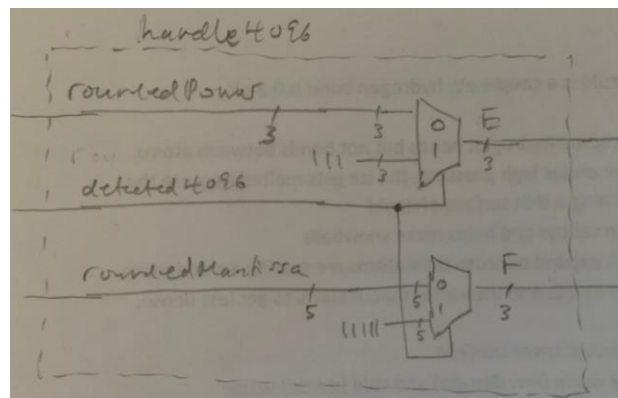 handle4096
roundedPower
3 3
0
E
3
111
3
1
detected4096
roundedMantissa
5 5
0
F
3
11111
5
1